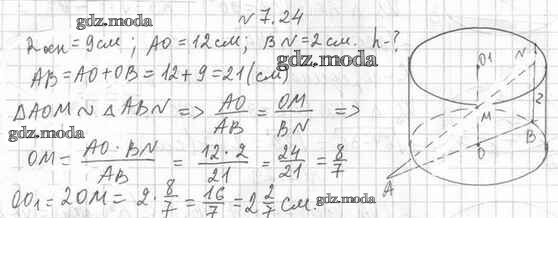 № 7.24
gdz.moda
Rосн = 9см; AO = 12см; BN = 2см. h-?
AB = AO + OB = 12 + 9 = 21 (см)
gdz.moda
△AOM ~ △ABN => AO/AB = OM/BN =>
gdz.moda
OM = AO · BN/AB = 12 · 2/21 = 24/21 = 8/7
gdz.moda
OO₁ = 2OM = 2 · 8/7 = 16/7 = 2 2/7 см.
gdz.moda
gdz.moda
O1
N
M
2
B
O
A